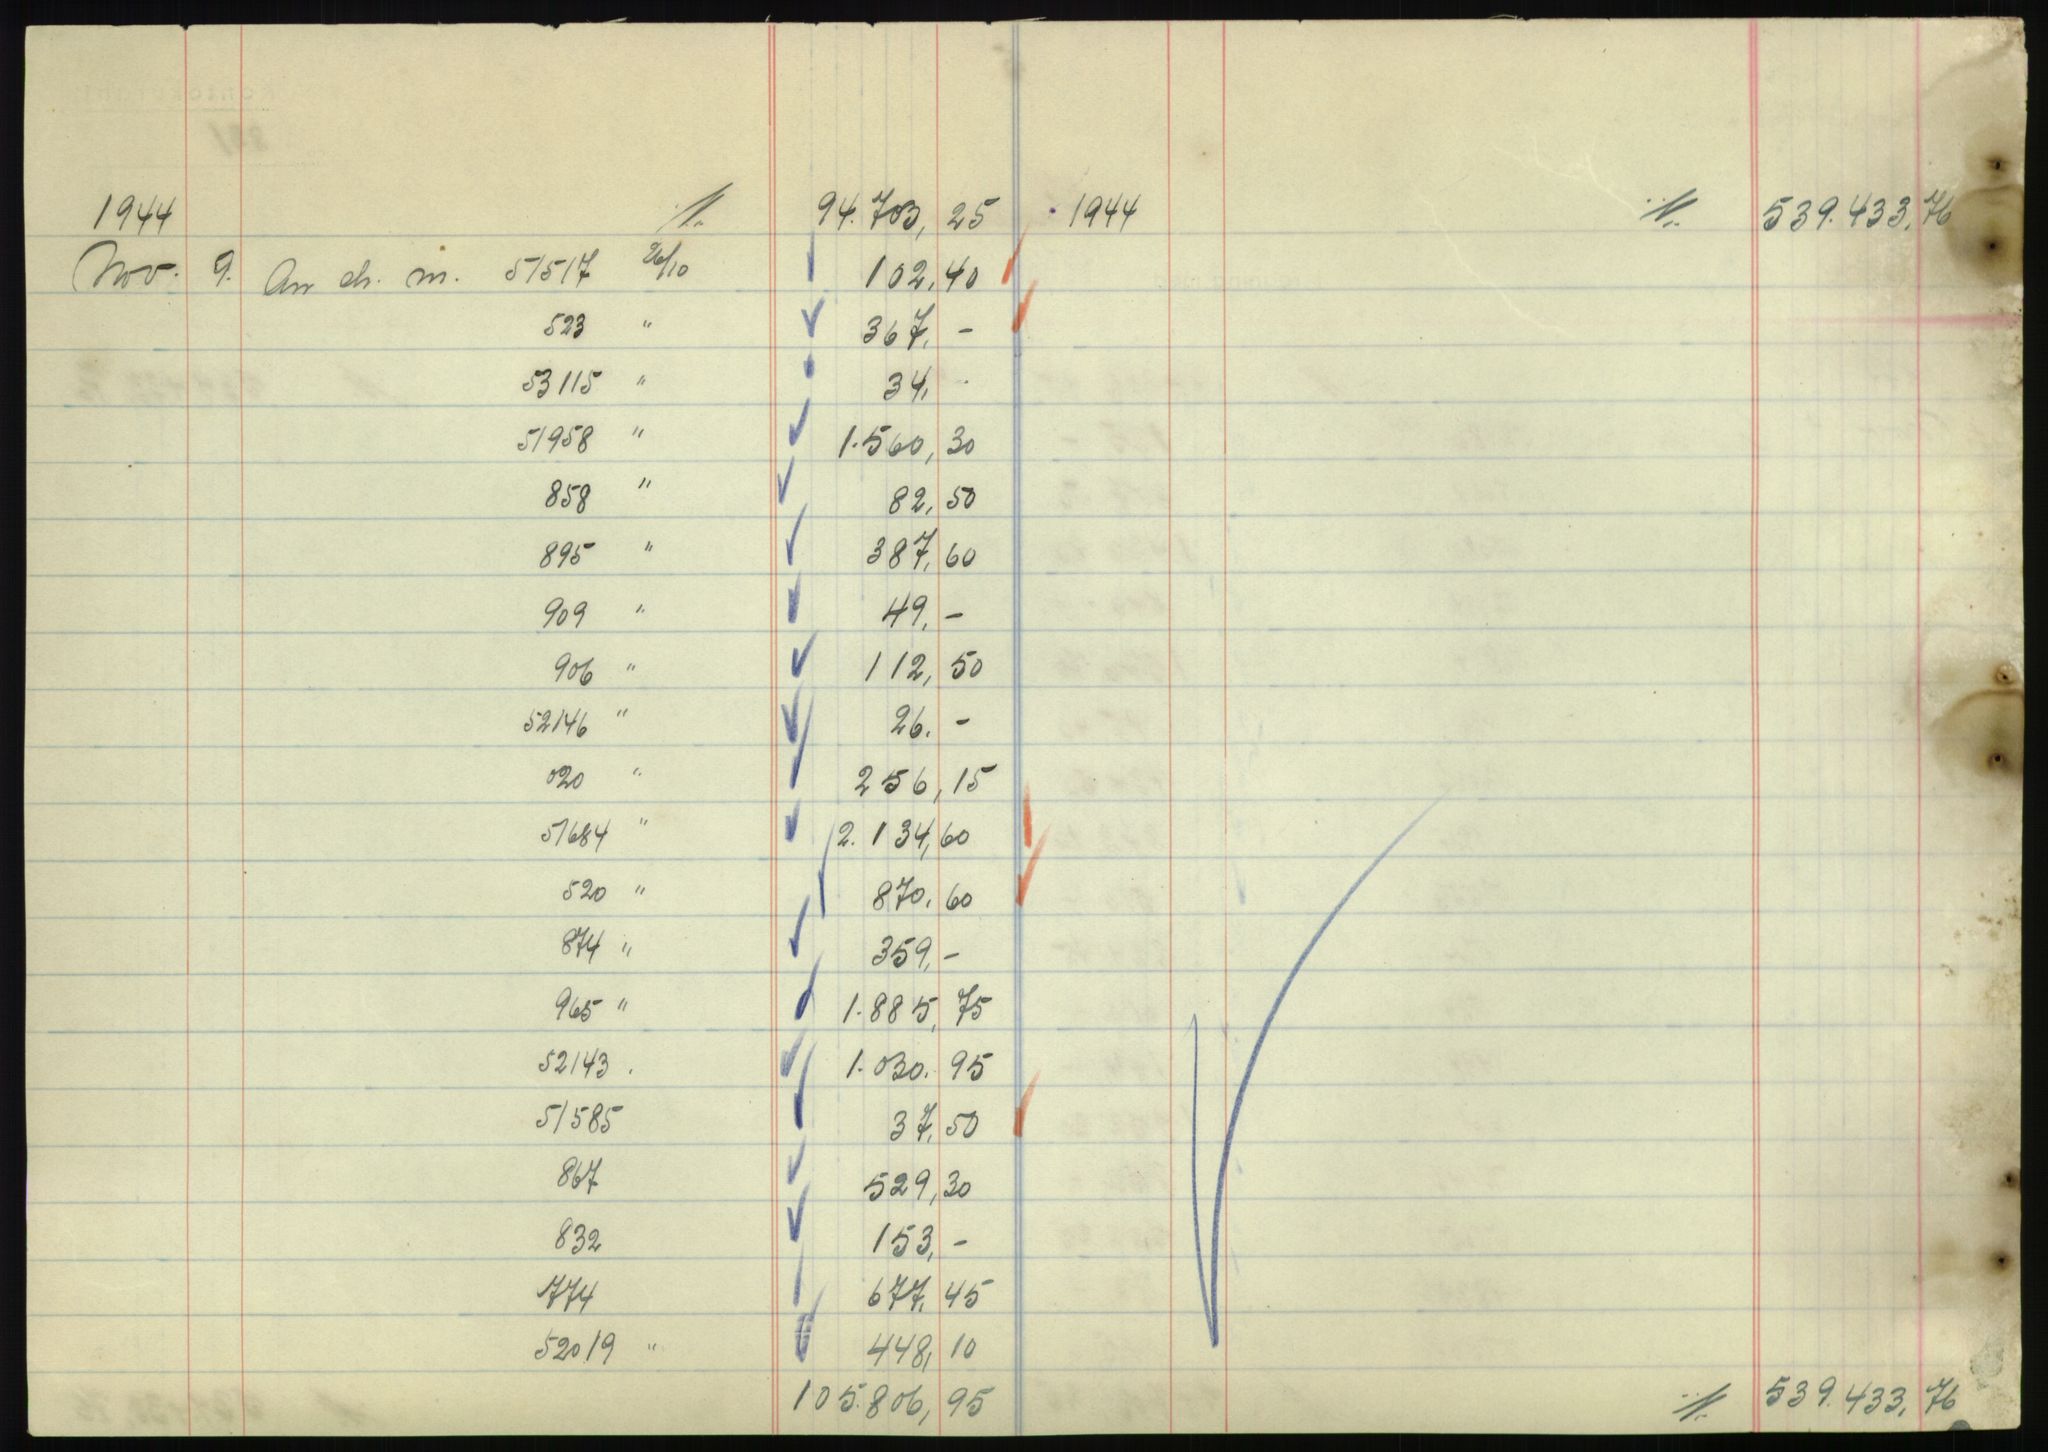 1944 ·/· 94.703,25 1944 ·/· 539.433,76
Nov. 9. An ch. m. 51517 26/10 102,40
523 " 367,-
53115 " 34,-
51958 " 1.560,30
858 " 82,50
895 " 387,60
909 " 49,-
906 " 112,50
52146 " 26.-
020 " 256,15
51684 " 2.134,60
520 " 870,60
874 " 359,-
965 " 1.885,75
52143 . 1.030.95
51585 37,50
867 529,30
832 153,-
774 677,45
52019 " 448,10
105.806,95 ·/· 539.433,76